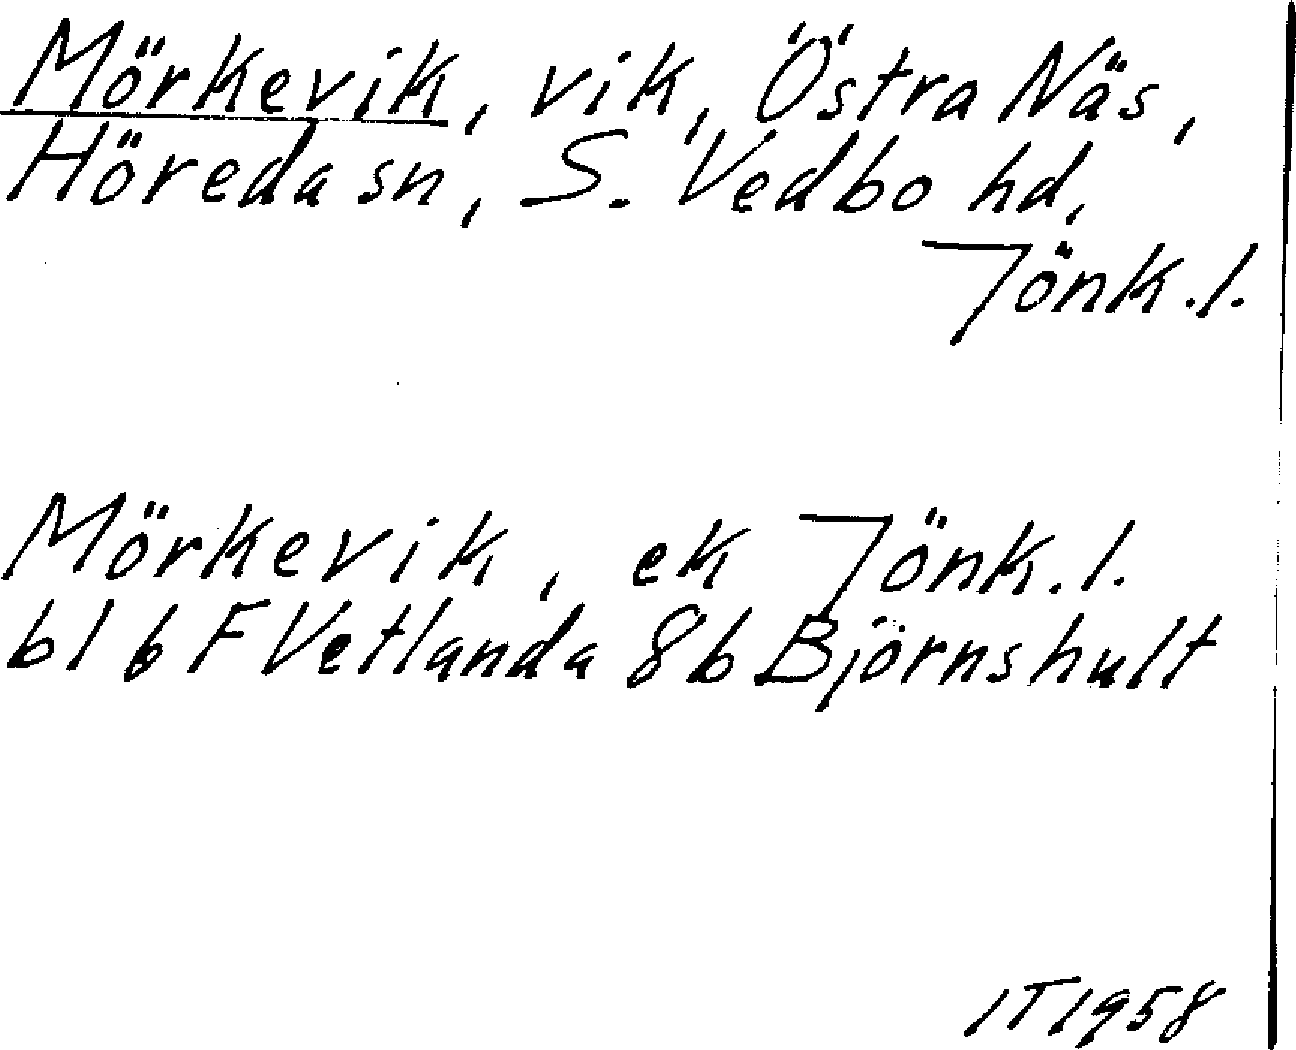 Mörkevik, vik, Östra Näs,
Höreda sn, S. Vedbo hd,
Jönk.l.
Mörkevik, ek Jönk.l.
bl 6 F Vetlanda 8b Björnshult
IT 1958